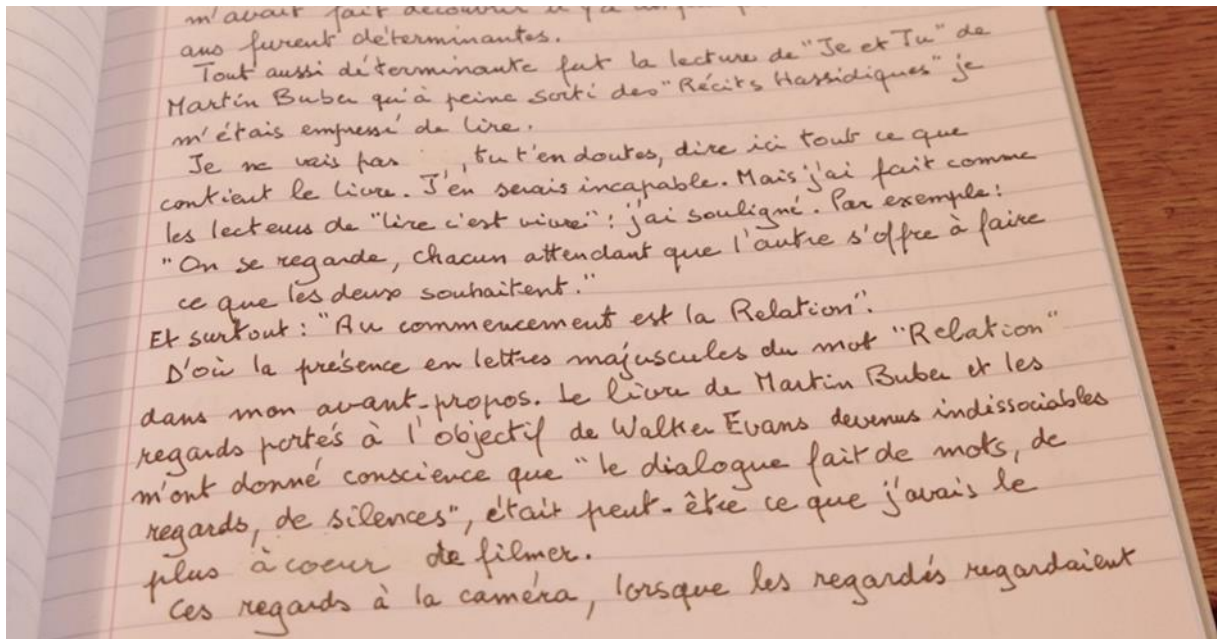 m'avait fait découvrir il y a
ans furent déterminantes.
Tout aussi déterminante fut la lecture de "Je et Tu" de
Martin Buber qu'à peine sorti des "Récits Hassidiques" je
m'étais empressé de lire.
Je ne vais pas , tu t'en doutes, dire ici tout ce que
contient le livre. J'en serais incapable. Mais j'ai fait comme
les lecteurs de "lire c'est vivre" : j'ai souligné. Par exemple :
"On se regarde, chacun attendant que l'autre s'offre à faire
ce que les deux souhaitent."
Et surtout : "Au commencement est la Relation".
D'où la présence en lettres majuscules du mot "Relation"
dans mon avant-propos. Le livre de Martin Buber et les
regards portés à l'objectif de Walker Evans devenus indissociables
m'ont donné conscience que "le dialogue fait de mots, de
regards, de silences", était peut-être ce que j'avais le
plus à coeur de filmer.
Ces regards à la caméra, lorsque les regardés regardaient